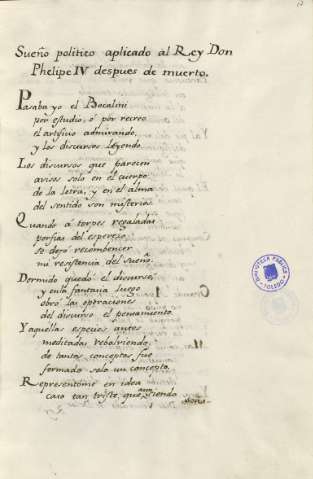 Sueño politico aplicado al Rey Don
Phelipe IV despues de muerto.
Pasaba yo el Bocalini
por estudio, ó por recreo
el artificio admirando,
y los discursos leyendo.
Los discursos que parecen
avisos solo en el cuerpo
de la letra, y en el alma
del sentido son misterios.
Quando á torpes regaladas
porfias del espereso
se dejó
mi resistencia del sueño.
Dormido quedó el discurso,
y en la fantasia luego
obró las operaciones
del discurso el pensamiento.
Y aquellas especies antes
meditadas rebosviendo,
de tantos conceptos fue
formado solo un concepto.
Representóme en idea
caso tan triste, que aun siendo
BIBLIOTECA PUBLICA
TOLEDO